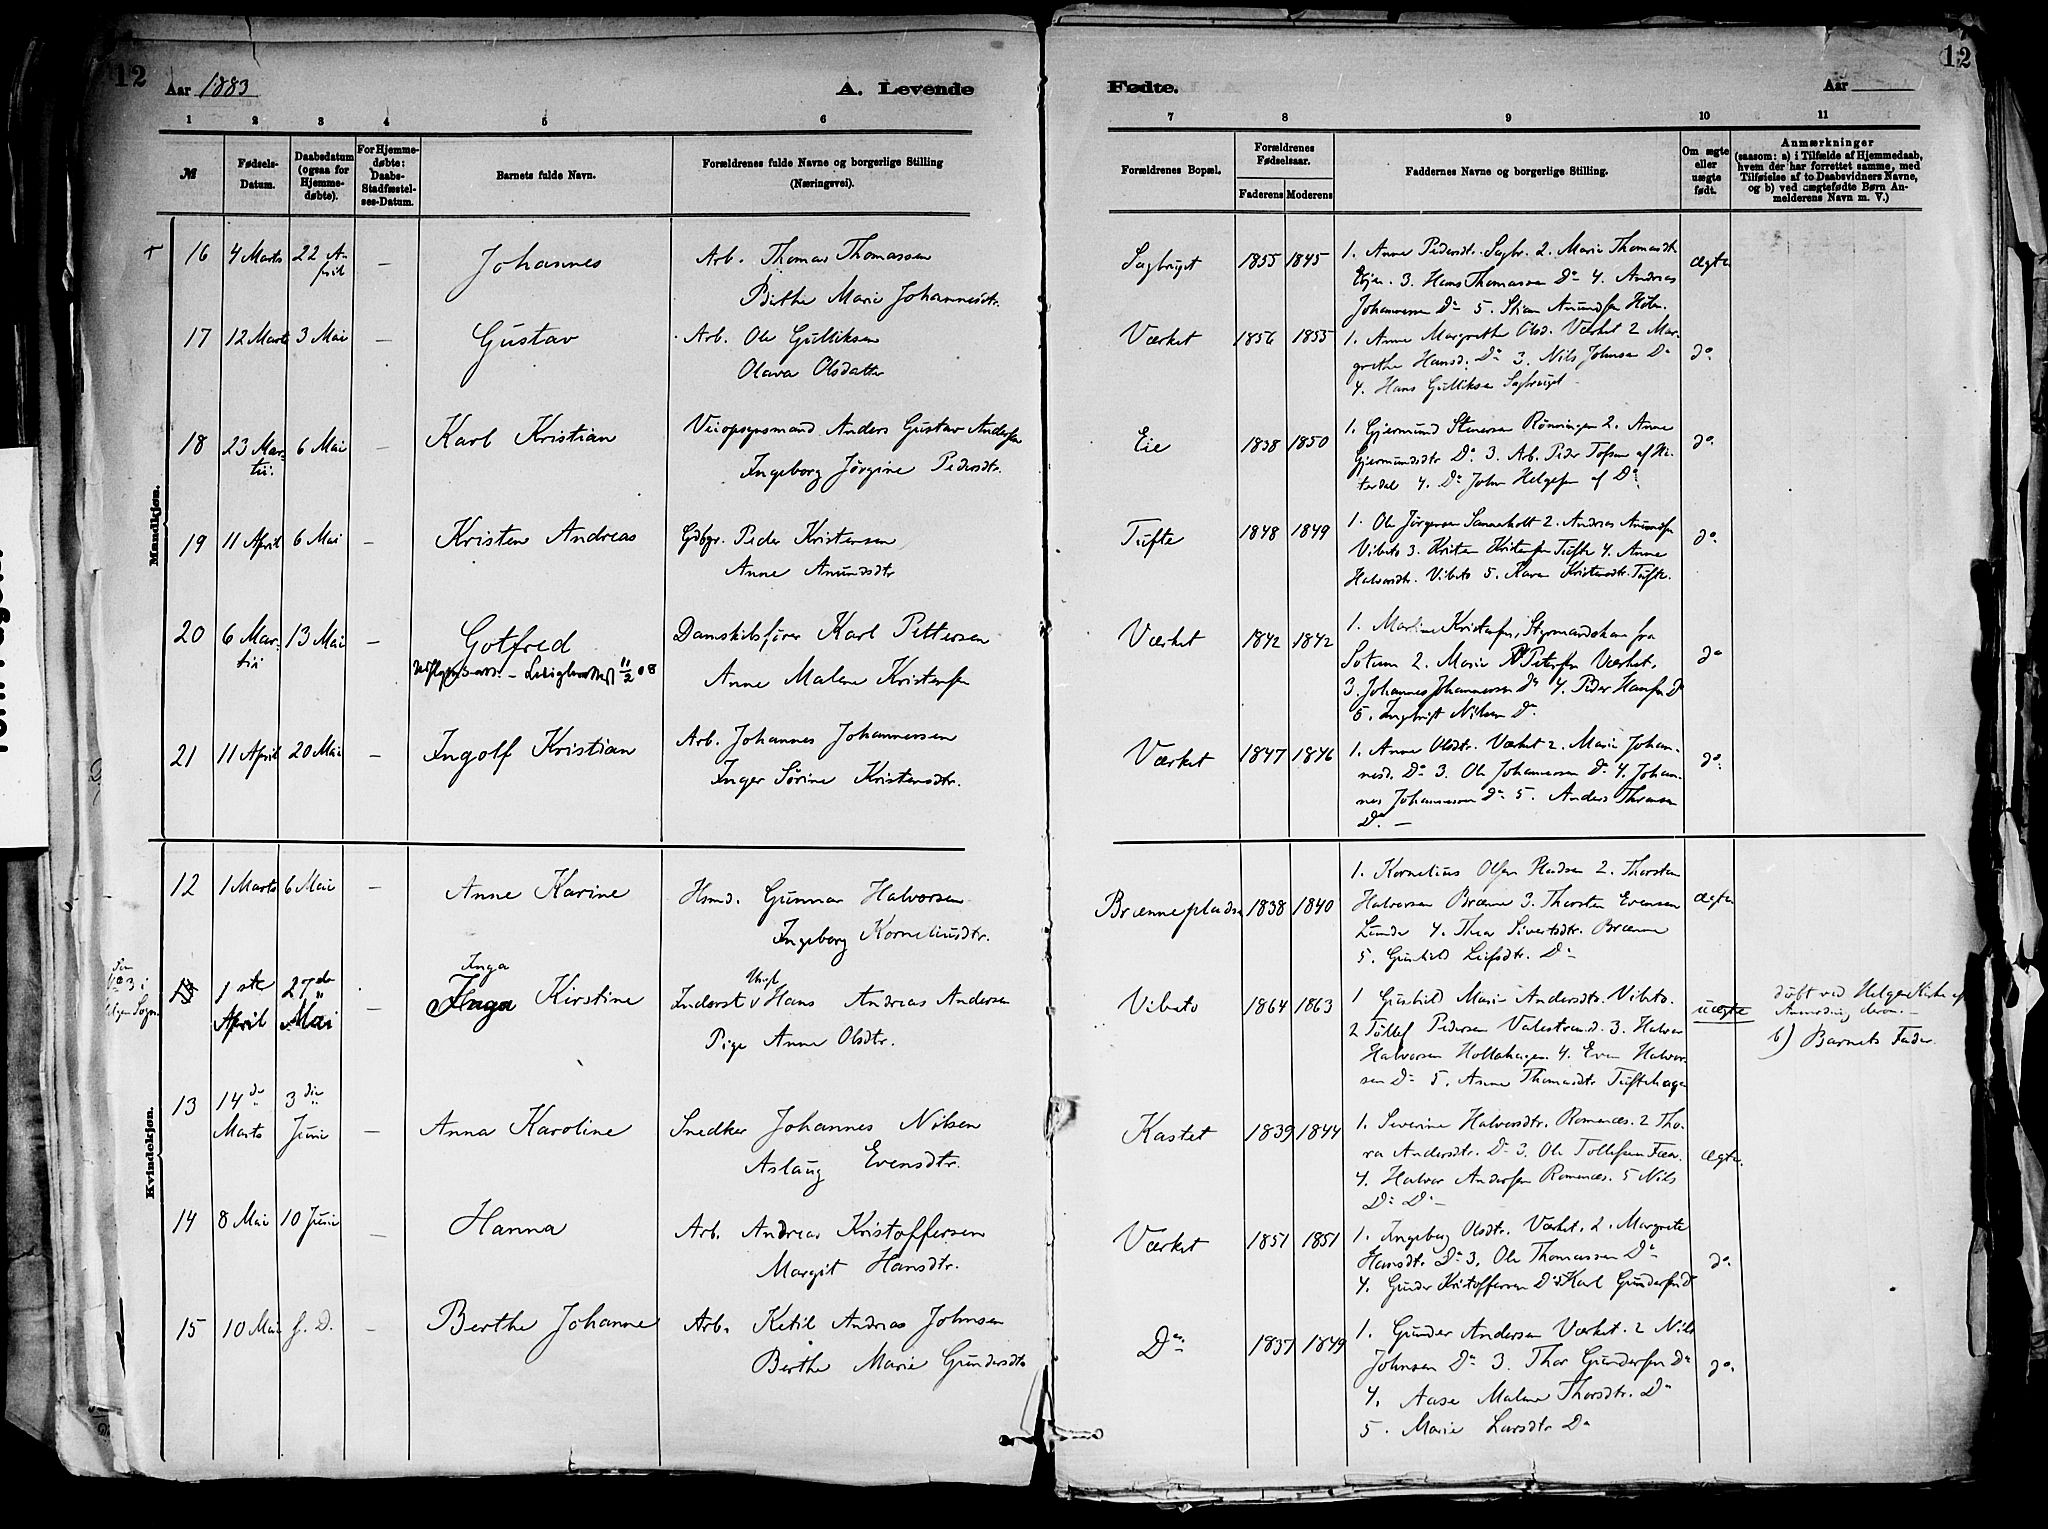 12
Aar 1883
A. Levende
Fødte.
Aar
12
1 2 3 4 5 6 7 8 9 10 11
№
Fødsels-Datum.
Daabsdatum (ogsaa for Hjemme-døbte).
For Hjemme-døbte: Daabs-Stadfæstel-ses-Datum.
Barnets fulde Navn.
Forældrenes fulde Navne og borgerlige Stilling (Næringsvei).
Forældrenes Bopæl.
Forældrenes Fødselsaar.
Faderens Moderens
Faddernes Navne og borgerlige Stilling.
Om ægte eller uægte født.
Anmærkninger
(saasom: a) i Tilfælde af Hjemmedaab, hvem der har forrettet samme, med Tilføielse af to Daabsvidners Navne, og b) ved uægtefødte Børn An-melderens Navn m. V.)
Mandkjøn.
16 4 Marts 22 April — Johannes
Arb. Thomas Thomassen
Birthe Marie Johannesdtr.
Sagbruget 1855 1845
1. Anne Pedersdtr. Sagbr. 2. Marie Thomasdtr.
Ejer. 3. Hans Thomassen Do 4. Andreas
Johannessen Do 5. Stian Amundsen Holm
ægte
17 12 Marts 3 Mai — Gustav
Arb. Ole Gulliksen
Olava Olsdatter
Værket 1856 1855
1. Anne Margrethe Olsd. Værket 2 Mar-
grethe Hansd. Do 3. Nils Johnsen Do
4. Hans Gulliksen Sagbruget
do.
18 23 Mar-
tii. 6 Mai — Karl Kristian
Veiopsynsmand Anders Gustav Andersen
Ingeborg Jørgine Pedersdtr.
Eie 1838 1850
1. Gjermund Stenersen Rønningen 2. Anne
Gjermundsdtr Do 3. Arb. Peder Tofsen af Hi-
terdal 4. Do John Helgesen af Do
do.
19 11 April 6 Mai — Kristen Andreas
Gdbgr. Peder Kristensen
Anne Amundsdtr
Tufte 1848 1849
1. Ole Jørgensen Sanneholt 2. Andreas Amundsen
Vibeto 3. Kristen Kristensen Tufte 4. Anne
Halvorsdtr. Vibeto 5. Karen Kristensdtr. Tufte.
do.
20 6 Mar-
tii 13 Mai — Gotfred
Damskibsfører Karl Pettersen
Anne Malene Kristensen
Værket 1842 1842
1. Martine Kristensen, Styrmandskone fra
2. Marie Petersen Værket,
3. Johannes Johannessen Do 4. Peder Hansen Do
5. Ingebrigt Nilsen Do
do
21 11 April 20 Mai — Ingolf Kristian
Arb. Johannes Johannessen
Inger Sørine Kristensdtr.
Værket 1847 1846
1. Anne Olsdtr. Værket 2. Marie Johan-
nesd. Do 3. Ole Johannessen Do 4. Johan-
nes Johannessen Do 5. Anders Thomsen
Do. —
do.
Kvindekjøn.
12 1 Marts 6 Mai — Anne Karine
Hsmd. Gunnar Halvorsen
Ingeborg Korneliusdtr.
Brænnepladsen 1838 1840
1. Kornelius Olsen Pladsen 2. Thorsten
Halvorsen Brænne 3. Thorsten Evensen
Lunde 4. Thea Sivertsdtr. Brænne
5. Gunhild Leifsdtr. Do
ægte
1ste
April 27de
Mai — Inga
Inga Kirstine
Ungk.
Inderst v Hans Andreas Andersen
Pige Anne Olsdtr.
Vibeto 1864 1863
1 Gunhild Marie Andersdtr. Vibeto.
2 Tollef Pedersen Valestrand. 3. Halvor
Halvorsen Hollahagen. 4. Even Halvor-
sen Do 5. Anne Thomasdtr Tuftehagen
uægte
døbt ved Helgen Kirke
b) Barnets Fader.
13 14de
Marts 3die
Juni — Anna Karoline
Snedker Johannes Nilsen
Aslaug Evensdtr.
Kastet 1839 1844
1. Severine Halvorsdtr. Romenæs. 2 Tho-
ra Andersdtr. Do 3. Ole Tollefsen Fæn.
4. Halvor Andersen Romenæs. 5 Nils
Do Do
ægte.
14 8 Mai 10 Juni — Hanna
Arb. Andreas Kristoffersen
Margit Hansdtr.
Værket 1851 1851
1. Ingeborg Olsdtr. Værket. 2. Margrete
Hansdtr. Do 3. Ole Thomassen Do
4. Gunder Kristoffersen Do 5 Karl Gundersen Do
do.
15 10 Mai s. D. — Berthe Johanne
Arb. Ketil Andreas Johnsen
Berthe Marie Gundersdtr
Do. 1837 1849
1. Gunder Andersen Værket. 2 Nils
Johnsen Do 3. Thor Gundersen Do
4. Aase Malene Thorsdtr. Do
5. Marie Larsdtr Do
do.